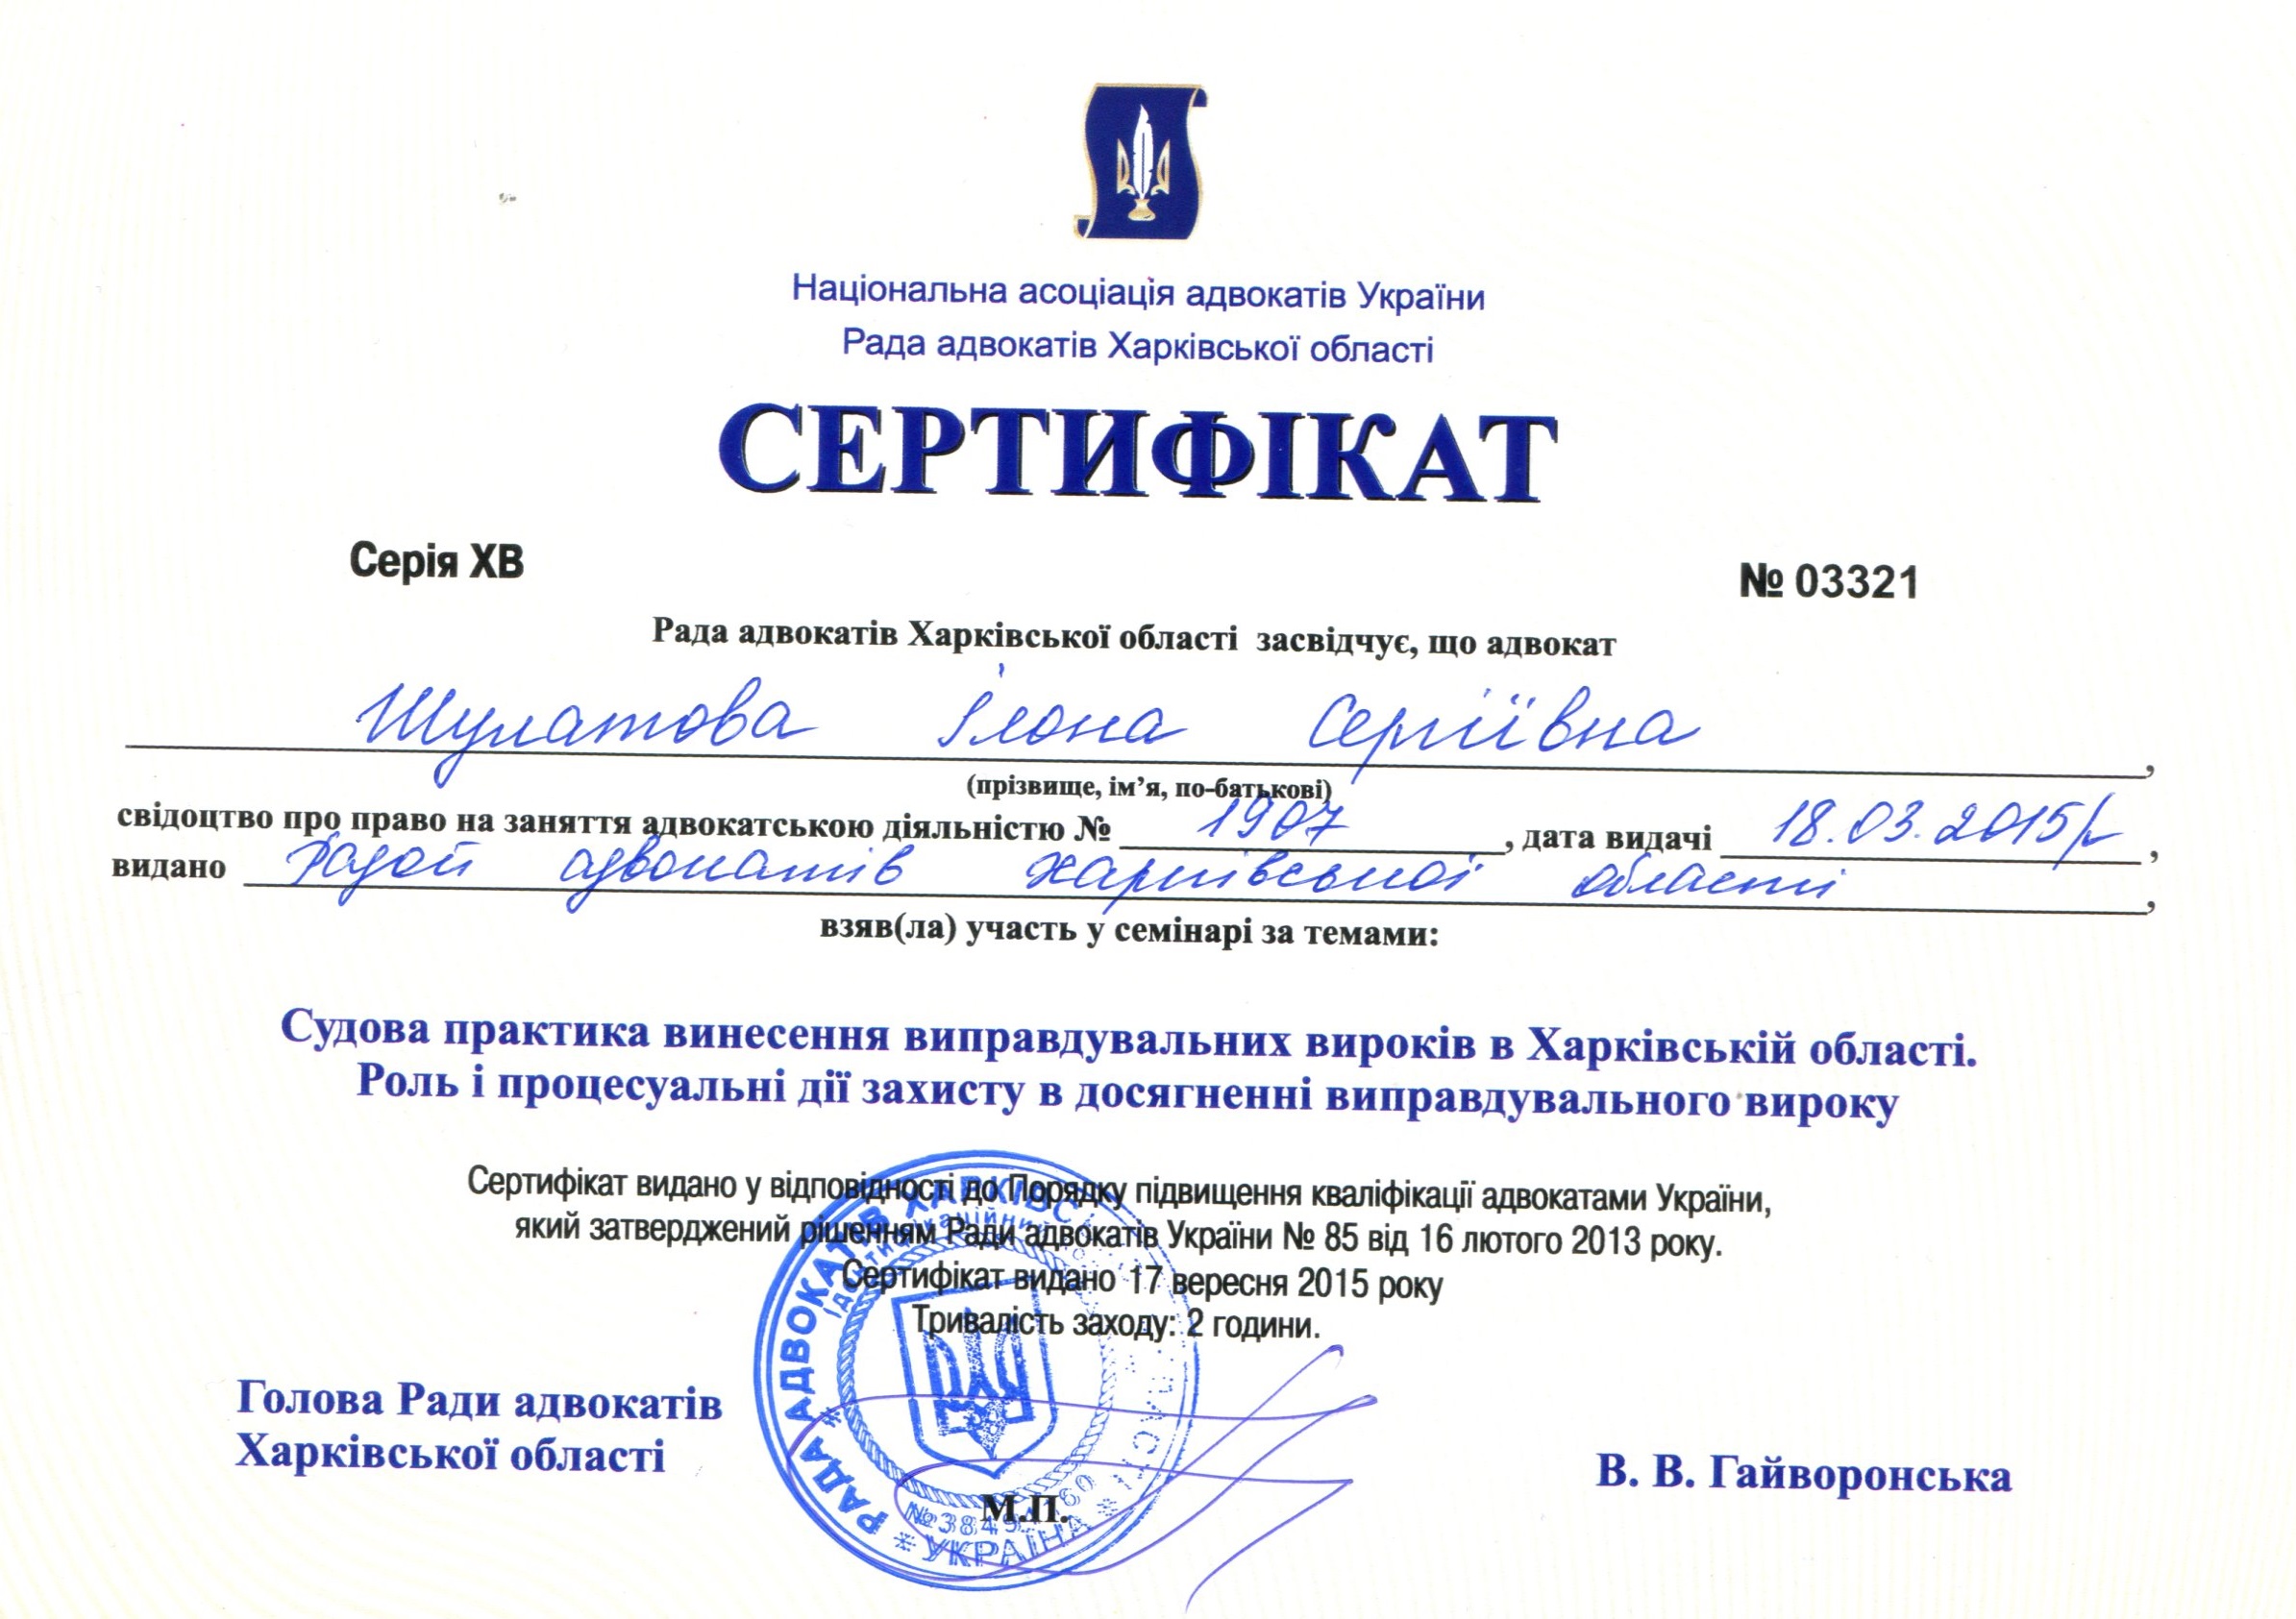 Національна асоціація адвокатів України
Рада адвокатів Харківської області
СЕРТИФІКАТ
Серія ХВ № 03321
Рада адвокатів Харківської області засвідчує, що адвокат
Шулатова Ілона Сергіївна,
(прізвище, ім’я, по-батькові)
свідоцтво про право на заняття адвокатською діяльністю № 1907, дата видачі 18.03.2015р,
видано Радой адвокатів Харківської області,
взяв(ла) участь у семінарі за темами:
Судова практика винесення виправдувальних вироків в Харківській області.
Роль і процесуальні дії захисту в досягненні виправдувального вироку
Сертифікат видано у відповідності до Порядку підвищення кваліфікації адвокатами України,
який затверджений рішенням Ради адвокатів України № 85 від 16 лютого 2013 року.
Сертифікат видано 17 вересня 2015 року
Тривалість заходу: 2 години.
Голова Ради адвокатів
Харківської області
В. В. Гайворонська
М.П.
РАДА АДВОКАТІВ
УКРАЇНА